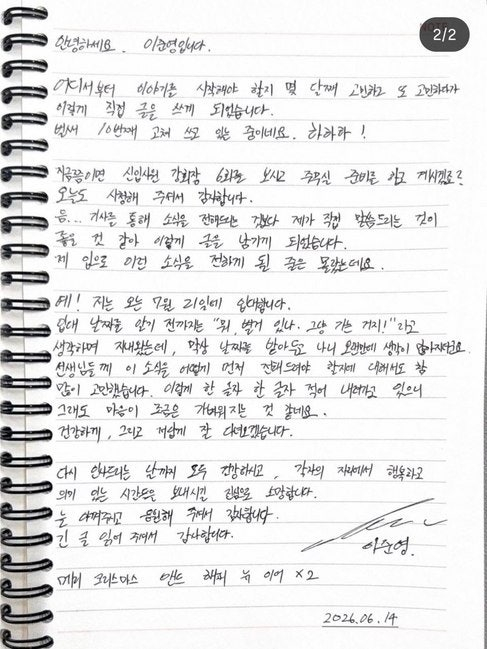 2/2
안녕하세요. 이준영입니다.
어디서부터 이야기를 시작해야 할지 몇 달째 고민하고 또 고민하다가
이렇게 직접 글을 쓰게 되었습니다.
벌써 10번째 고쳐 쓰고 있는 중이네요. 하하하!
지금쯤이면 신입사원 강회장 6회를 보시고 주무실 준비를 하고 계시겠죠?
오늘도 시청해 주셔서 감사합니다.
음... 기사를 통해 소식을 전해드리는 것보다 제가 직접 말씀드리는 것이
좋을 것 같아 이렇게 글을 남기게 되었습니다.
제 입으로 이런 소식을 전하게 될 줄은 몰랐는데요.
네! 저는 오는 7월 21일에 입대합니다.
입대 날짜를 알기 전까지는 "뭐, 별거 있나. 그냥 가는 거지!"라고
생각하며 지내왔는데, 막상 날짜를 받아두고 나니 오랜만에 생각이 많아지더군요.
선생님들께 이 소식을 어떻게 먼저 전해드려야 할지에 대해서도 참
많이 고민했습니다. 이렇게 한 글자 한 글자 적어 내려가고 있으니
그래도 마음이 조금은 가벼워지는 것 같네요..
건강하게, 그리고 저답게 잘 다녀오겠습니다.
다시 인사드리는 날까지 모두 건강하시고, 각자의 자리에서 행복하고
의미 있는 시간들을 보내시길 진심으로 소망합니다.
늘 아껴주시고 응원해 주셔서 감사합니다.
긴 글 읽어 주셔서 감사합니다.
이준영.
메리 크리스마스 앤드 해피 뉴 이어 x2
2026.06.14